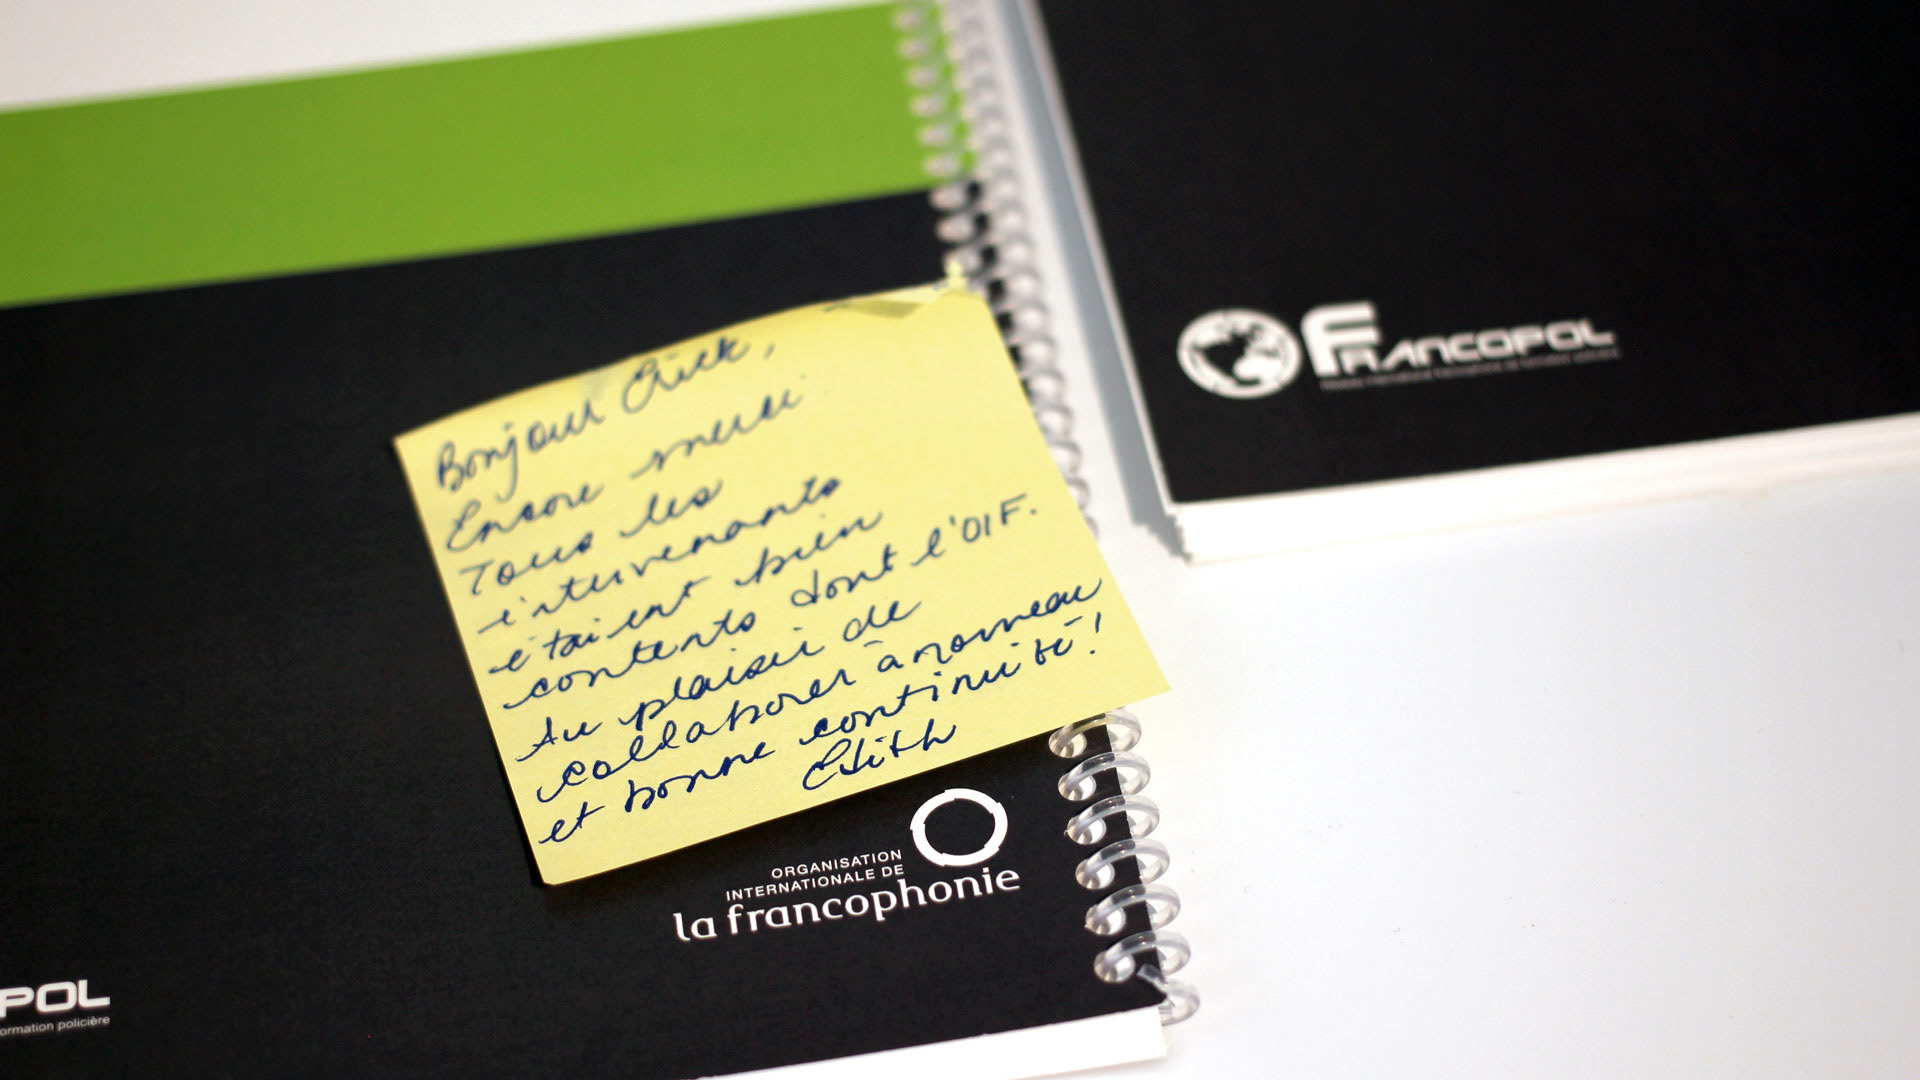 Bonjour Erick,
Encore merci
Tous les
intervenants
étaient bien
contents dont l'OIF.
Au plaisir de
collaborer à nouveau
et bonne continuité!
Edith
ORGANISATION
INTERNATIONALE DE
la francophonie
POL
ormation policière
FRANCOPOL